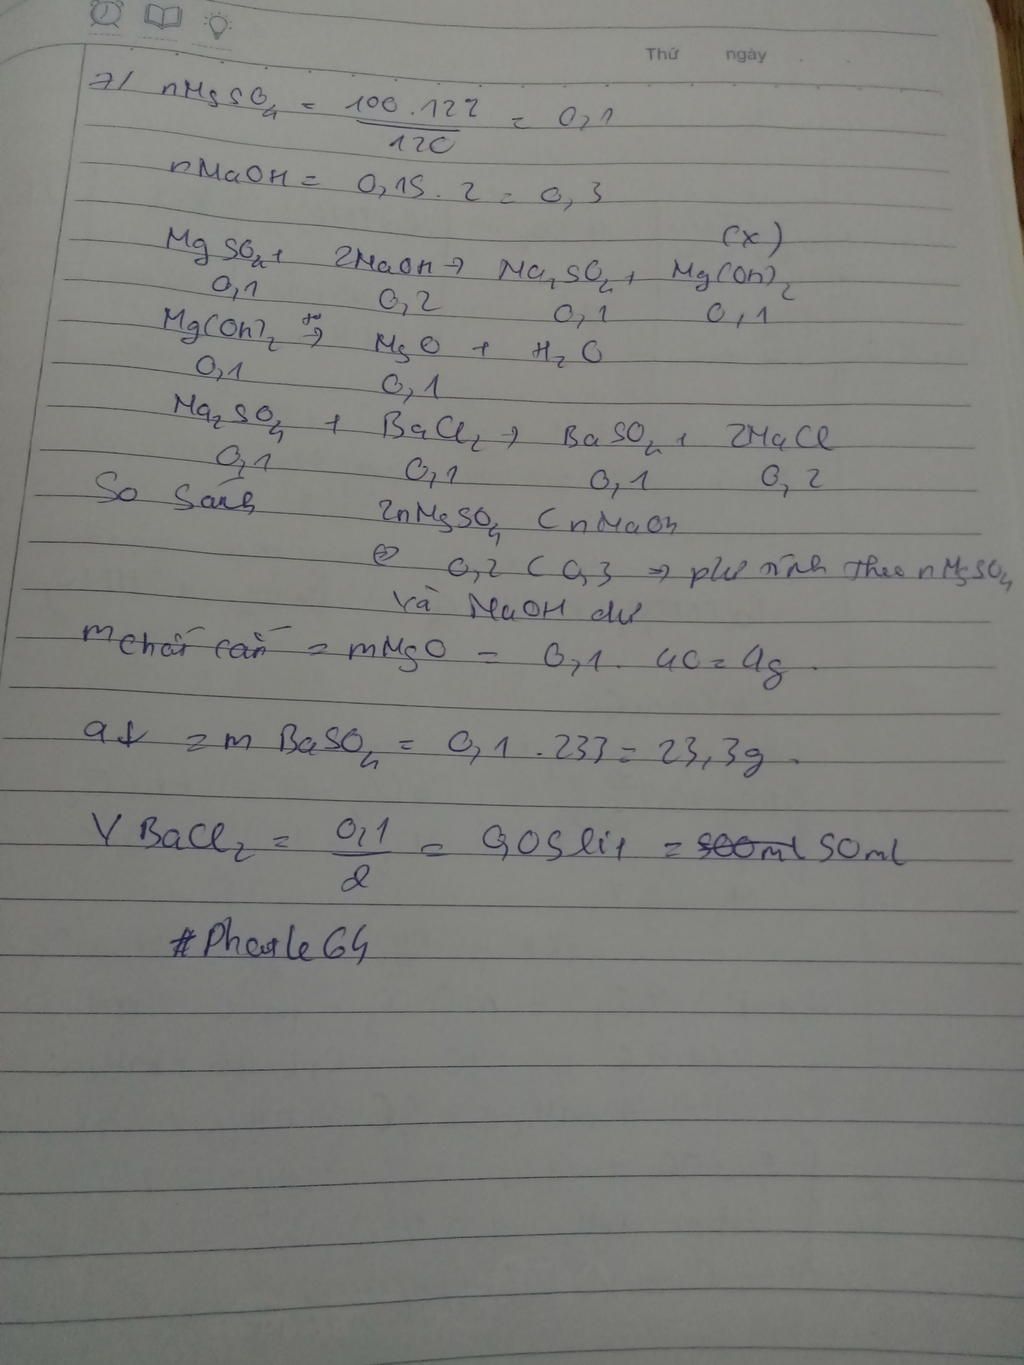 Thứ ngày
7/ nMgSO4 = 100.12% / 120 = 0,1
nNaOH = 0,15 . 2 = 0,3
(x)
MgSO4 + 2NaOH → Na2SO4 + Mg(OH)2
0,1 0,2 0,1 0,1
Mg(OH)2 t°→ MgO + H2O
0,1 0,1
Na2SO4 + BaCl2 → BaSO4 + 2NaCl
0,1 0,1 0,1 0,2
So sánh 2nMgSO4 < nNaOH
⇔ 0,2 < 0,3 ⇒ pư tính theo nMgSO4
và NaOH dư
m chất rắn = mMgO = 0,1 . 40 = 4g.
a↓ = m BaSO4 = 0,1 . 233 = 23,3g.
V BaCl2 = 0,1 / 2 = 0,05 lít = 500ml 50ml